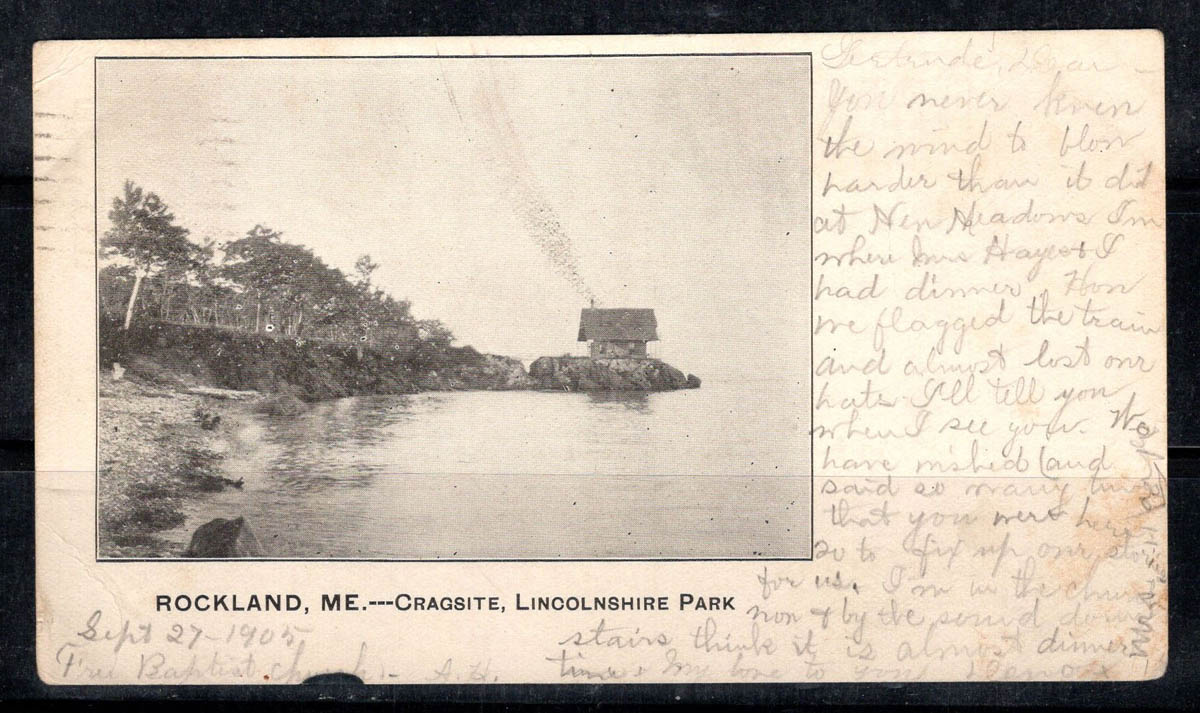 Gertrude, Dear –
You never knew
the wind to blow
harder than it did
at New Meadows I'm
where Mrs Hayes & I
had dinner. How
we flagged the train
and almost lost our
hats I'll tell you
when I see you. We
have wished (and
said so many
that you were here
so to fix up our
for us. I'm in the
now & by the sound down
stairs think it is almost dinner
time. My love to you
ROCKLAND, ME.---CRAGSITE, LINCOLNSHIRE PARK
Sept 27-1905
Free Baptist Church. - A.H.